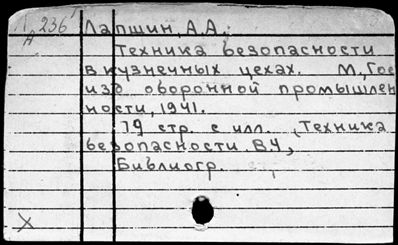 А 236
Лапшин, А.А.:
Техника безопасности
в кузнечных цехах. М., Гос
изд оборонной промышлен
ности, 1941.
79 стр. с илл. , Техника
безопасности. ВЧ,
Библиогр.
X